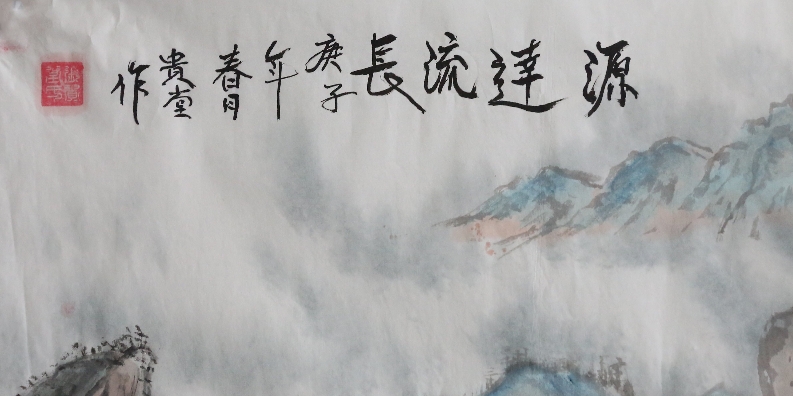 源達流長庚子年春月貴堂作